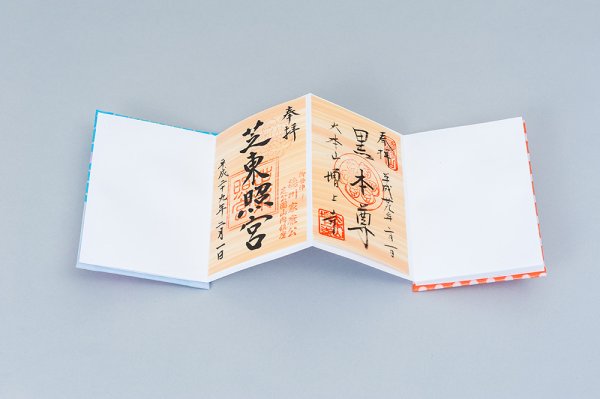 奉拝
黒本尊
平成廿九年二月一日
大本山増上寺
奉拝
芝東照宮
平成二十九年二月一日